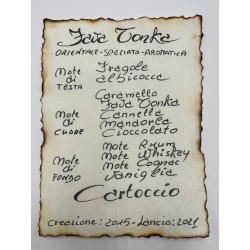 Fava Tonka
ORIENTALE-SPEZIATA-AROMATICA
Note di TESTA
Fragole
albicocca
Note di CUORE
Caramello
Fava Tonka
Cannella
Mandorla
Cioccolato
Note di FONDO
Note Rhum
Note Whiskey
Note Cognac
Vaniglia
Cartoccio
Creazione: 2015-Lancio: 2021